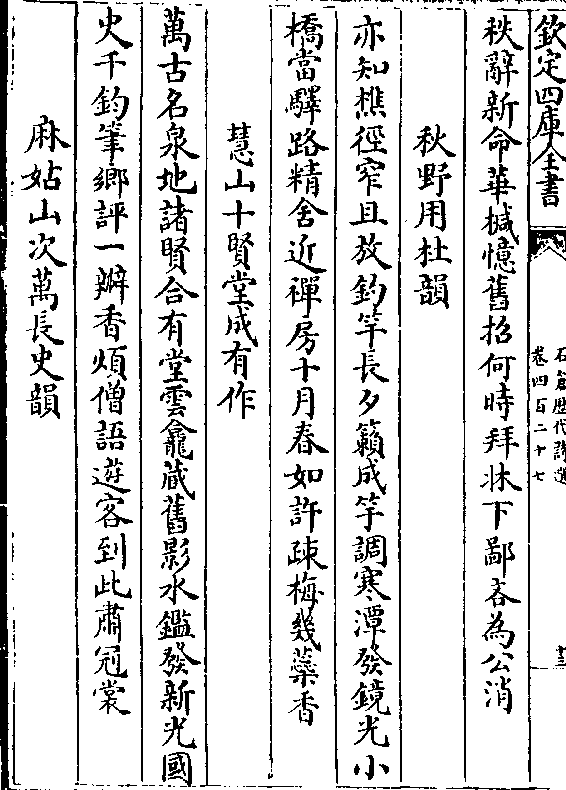 欽定四庫全書
石倉歴代詩選
卷四百二十七
十三
秩辭新命華椷憶舊招何時拜牀下鄙吝為公消
秋野用杜韻
亦知樵徑窄且放釣竿長夕籟成竽調寒潭發鏡光小
橋當驛路精舍近禪房十月春如許疎梅幾蘂香
慧山十賢堂成有作
萬古名泉地諸賢合有堂雲龕蔵舊影水鑑發新光國
史千鈞筆鄉評一瓣香煩僧語遊客到此肅冠裳
麻姑山次萬長史韻